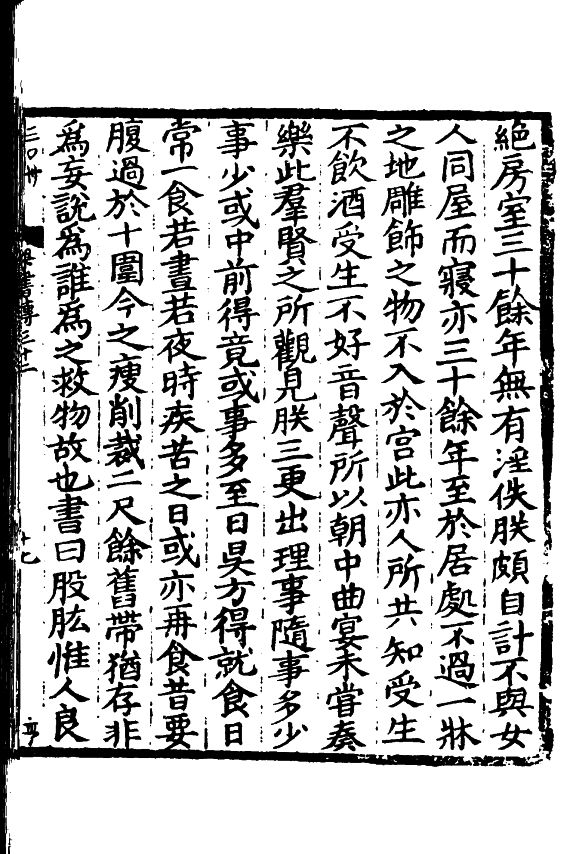 絶房室三十餘年無有淫佚朕頗自計不與女
人同屋而寢亦三十餘年至於居處不過一牀
之地雕飾之物不入於宫此亦人所共知受生
不飲酒受生不好音聲所以朝中曲宴未嘗奏
樂此羣賢之所觀見朕三更出理事隨事多少
事少或中前得竟或事多至日昃方得就食日
常一食若晝若夜時疾苦之日或亦再食昔要
腹過於十圍今之瘦削裁二尺餘舊帶猶存非
為妄說為誰為之救物故也書曰股肱惟人良